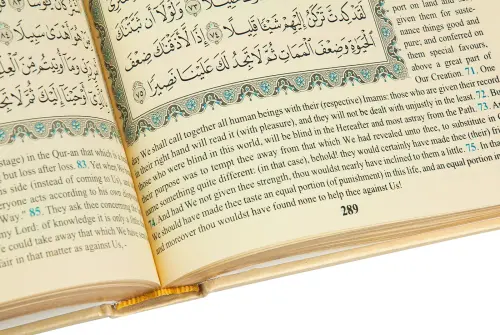 port on land and
given them for suste-
nance things good and
pure; and conferred on
them special favours,
above a great part of
Our Creation. 71. One
وَلَوْلَا أَن
لَقَدْ كِدتَّ تَرْكَنُ إِلَيْهِمْ شَيْئًا قَلِيلًا ٧٤ إِذًا لَّأَذَقْنَاكَ ضِعْفَ
الْحَيَوٰةِ وَضِعْفَ الْمَمَاتِ ثُمَّ لَا تَجِدُ لَكَ عَلَيْنَا نَصِيرًا ٧٥
day We shall call together all human beings with their (respective) Imams: those who are given their record
their right hand will read it (with pleasure), and they will not be dealt with unjustly in the least. 72. Bu
those who were blind in this world, will be blind in the Hereafter and most astray from the Path. 73.
their purpose was to tempt thee away from that which We had revealed unto thee, to substitute in
name something quite different: (in that case), behold! they would certainly have made thee (their)
74. And had We not given thee strength, thou wouldst nearly have inclined to them a little. 75. In tha
We should have made thee taste an equal portion (of punishment) in this life, and an equal portion
and moreover thou wouldst have found none to help thee against Us!
289
يَئُوسًا ٨٣
سَبِيلًا
أَوْحَيْنَا إِلَيْكَ ثُمَّ لَا تَجِدُ
stage) in the Qur-an that which is
but loss after loss. 83. Yet when We
side (instead of coming to Us), and
everyone acts according to his own dis
Way." 85. They ask thee concerning
my Lord: of knowledge it is only a
We could take away that which We have
fair in that matter as against Us,-